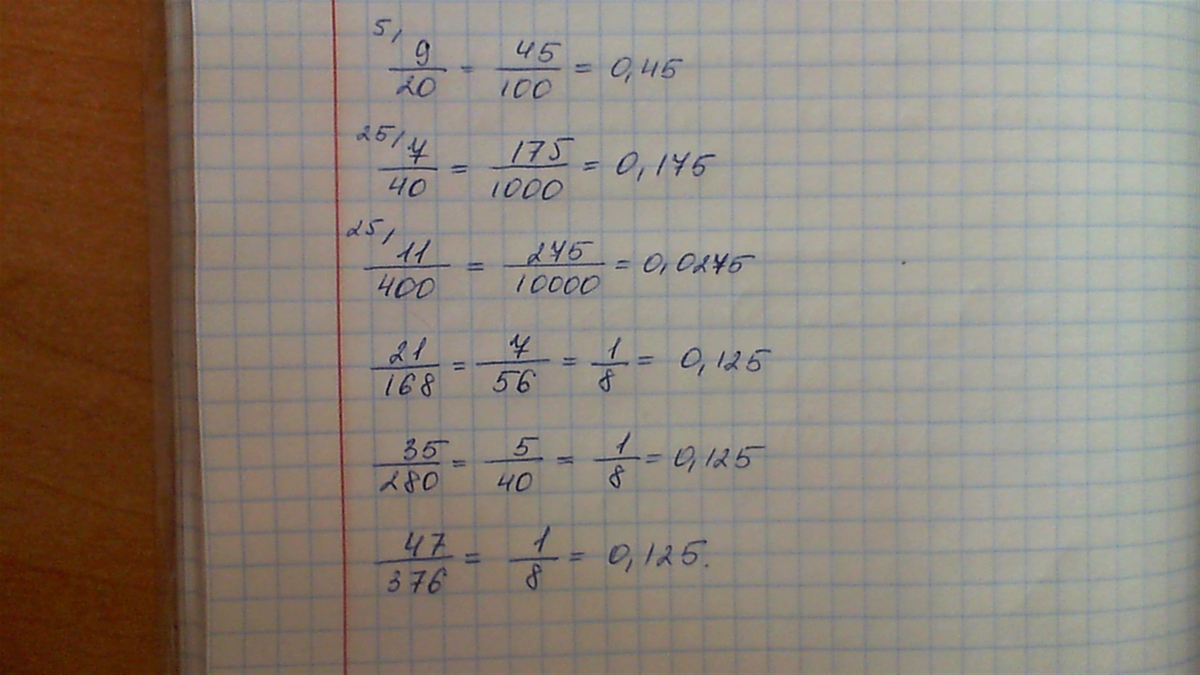 5/ 9/20 = 45/100 = 0,45
25/ 7/40 = 175/1000 = 0,175
25/ 11/400 = 275/10000 = 0,0275
21/168 = 7/56 = 1/8 = 0,125
35/280 = 5/40 = 1/8 = 0,125
47/376 = 1/8 = 0,125.